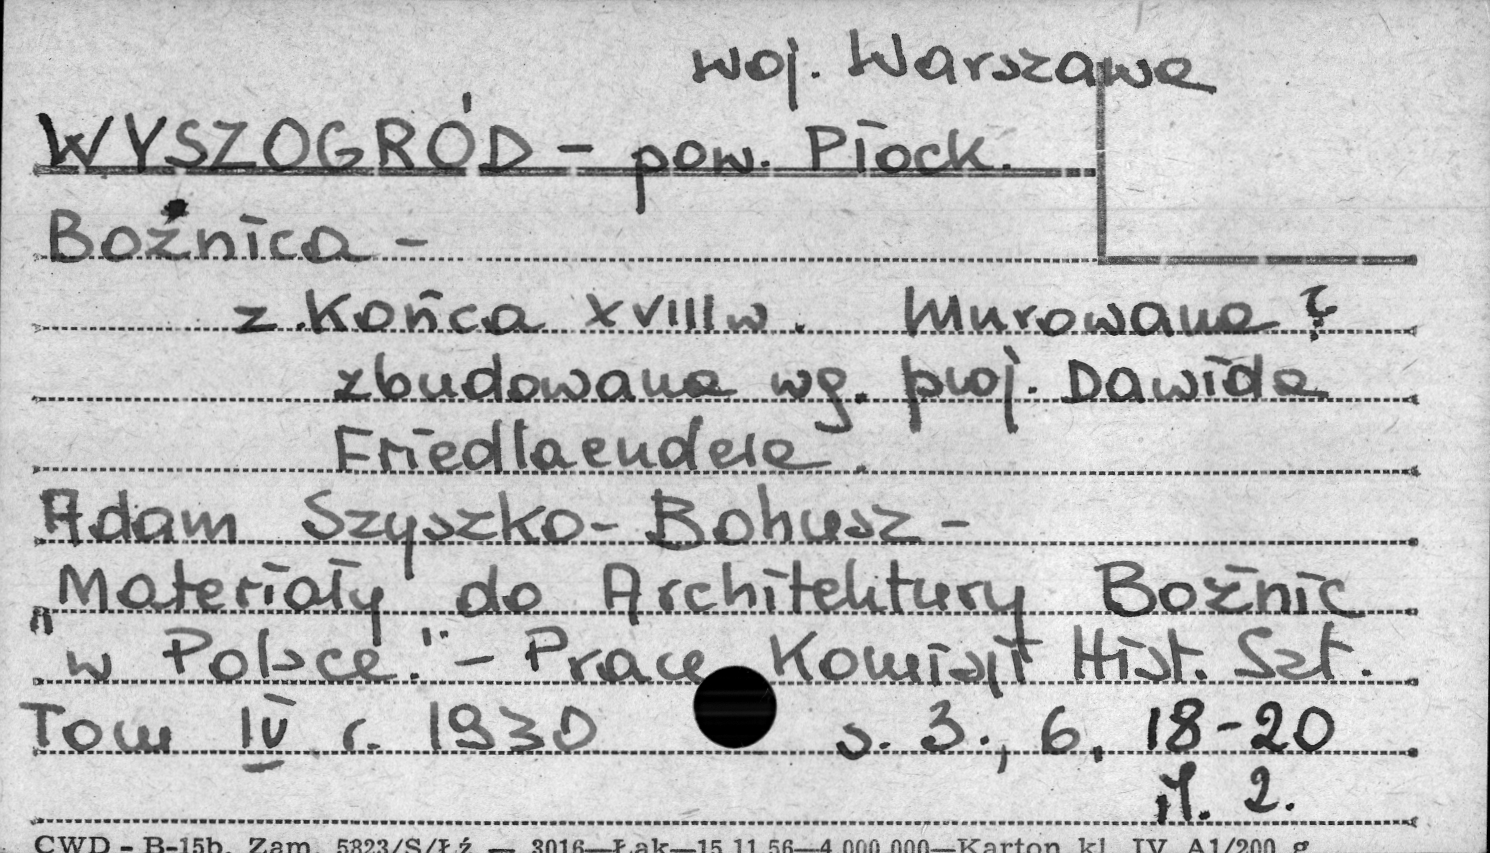 woj. Warszawa
WYSZOGRÓD - pow. Płock.
Bożnica -
z końca XVIII w. Murowana ?
zbudowana wg. proj. Dawida
Friedlaendera.
Adam Szyszko-Bohusz -
„Materiały do Architektury Bożnic
w Polsce." - Prace Komisji Hist. Szt.
Tom IV r. 1930 s. 3., 6, 18-20
il. 2.
CWD - B-15b. Zam. 5823/S/Łź — 3016—Łak—15.11.56—4.000.000—Karton kl. IV A1/200 g